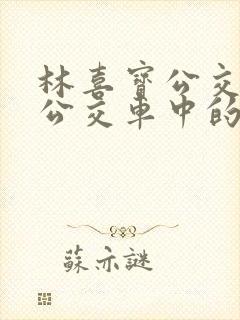 林喜寶公交
公交車中的
蘇亦謎